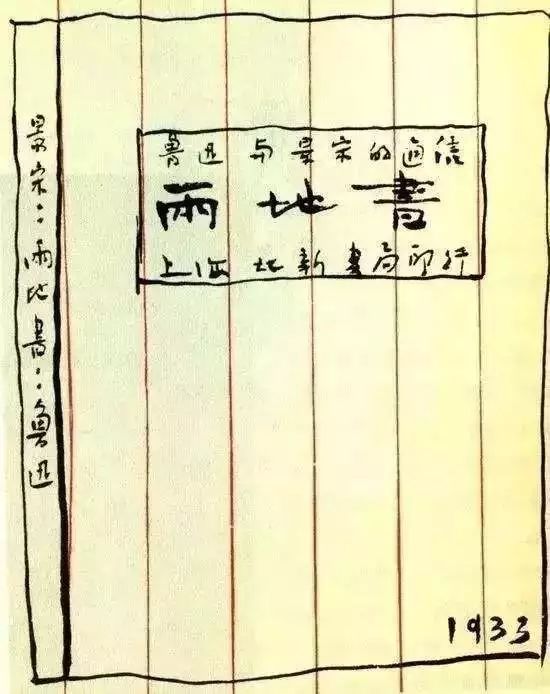 魯迅與景宋的通信
兩地書
上海北新書局印行
景宋：兩地書：魯迅
1933